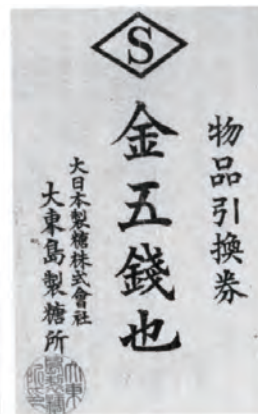 S
物品引換券
金五錢也
大日本製糖株式會社
大東島製糖所